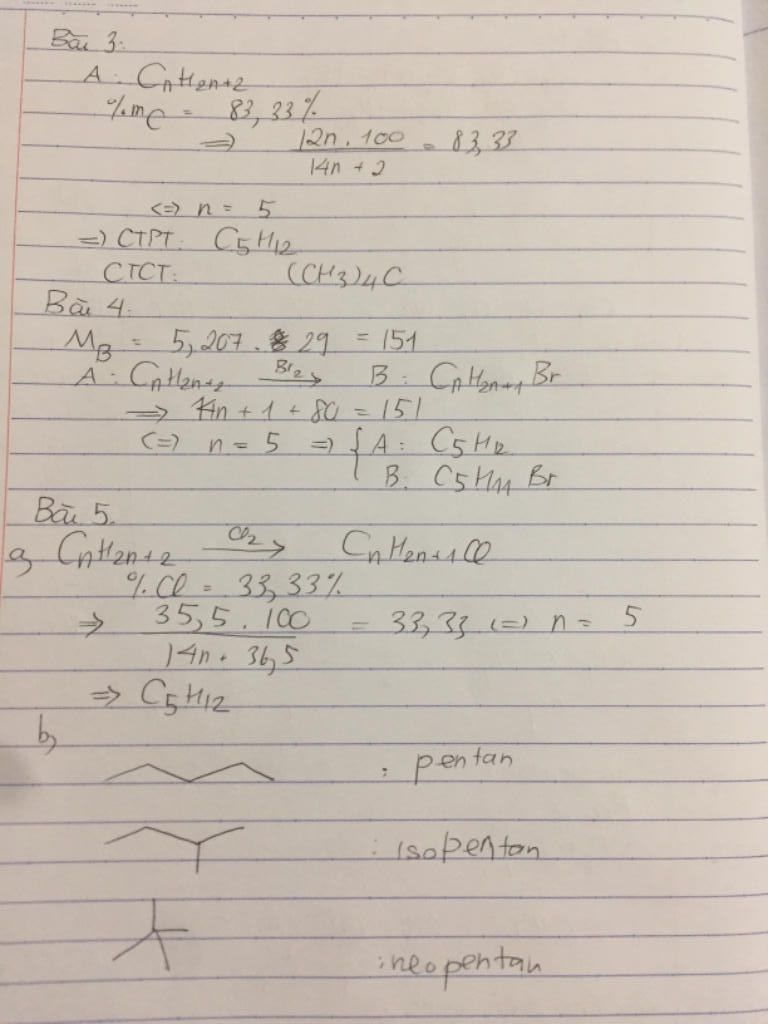 Bài 3:
A : CnH2n+2
%mC = 83,33%
=> 12n . 100 / 14n + 2 = 83,33
<=> n = 5
=> CTPT: C5H12
CTCT: (CH3)4C
Bài 4:
MB = 5,207 . 29 = 151
A : CnH2n+2 Br2 → B : CnH2n+1 Br
=> 14n + 1 + 80 = 151
<=> n = 5 => { A : C5H12
B: C5H11 Br
Bài 5.
a, CnH2n+2 Cl2 → CnH2n+1Cl
% Cl = 33,33%
=> 35,5 . 100 / 14n + 36,5 = 33,33 <=> n = 5
=> C5H12
b,
: pentan
: isopentan
: neopentan